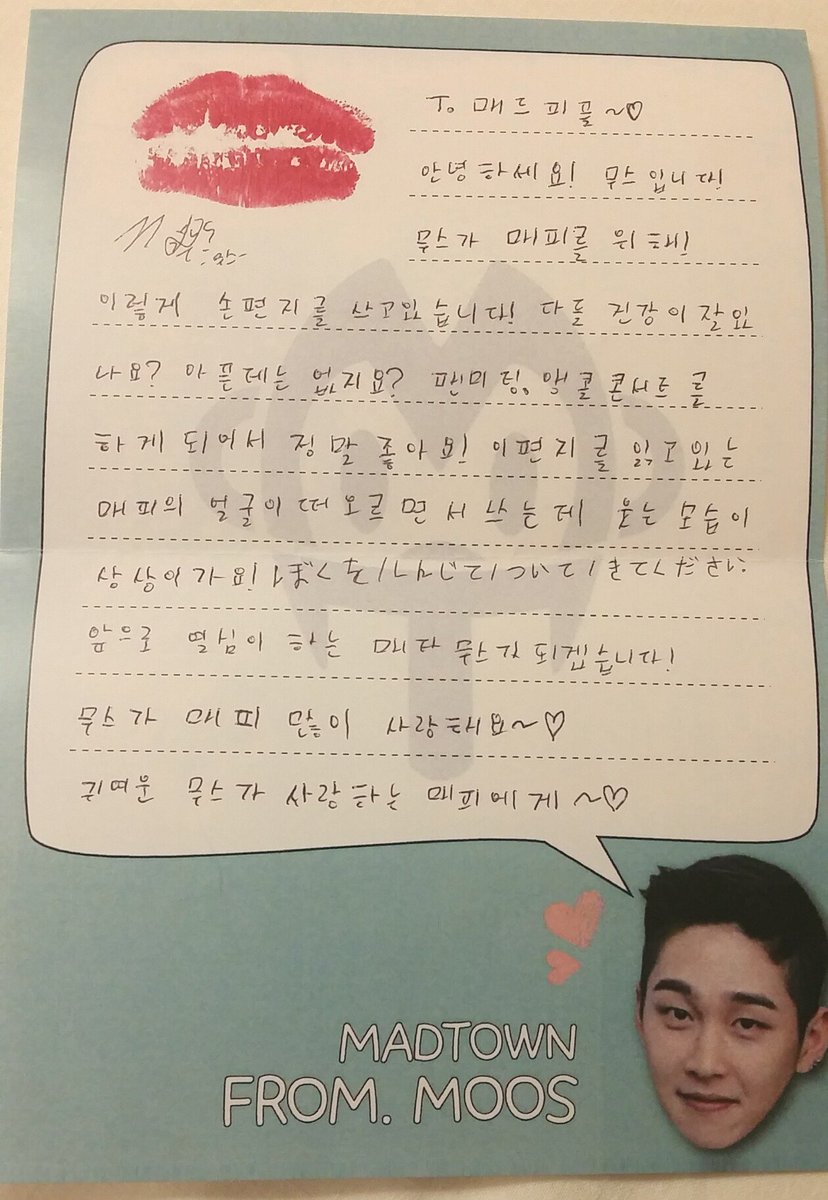 To 매드피플~♡
안녕하세요! 무스입니다!
무스가 매피를 위해!
이렇게 손편지를 쓰고있습니다! 다들 건강이 잘있
나요? 아픈데는 없지요? 팬미팅, 앵콜콘서트를
하게 되어서 정말 좋아요! 이편지를 읽고있는
매피의 얼굴이 떠오르면서 쓰는데 웃는 모습이
상상이가요! ぼくを しんじて ついて きてください
앞으로 열심이 하는 매타 무스가 되겠습니다!
무스가 매피 많이 사랑해요~♡
귀여운 무스가 사랑하는 매피에게~♡
MADTOWN
FROM. MOOS